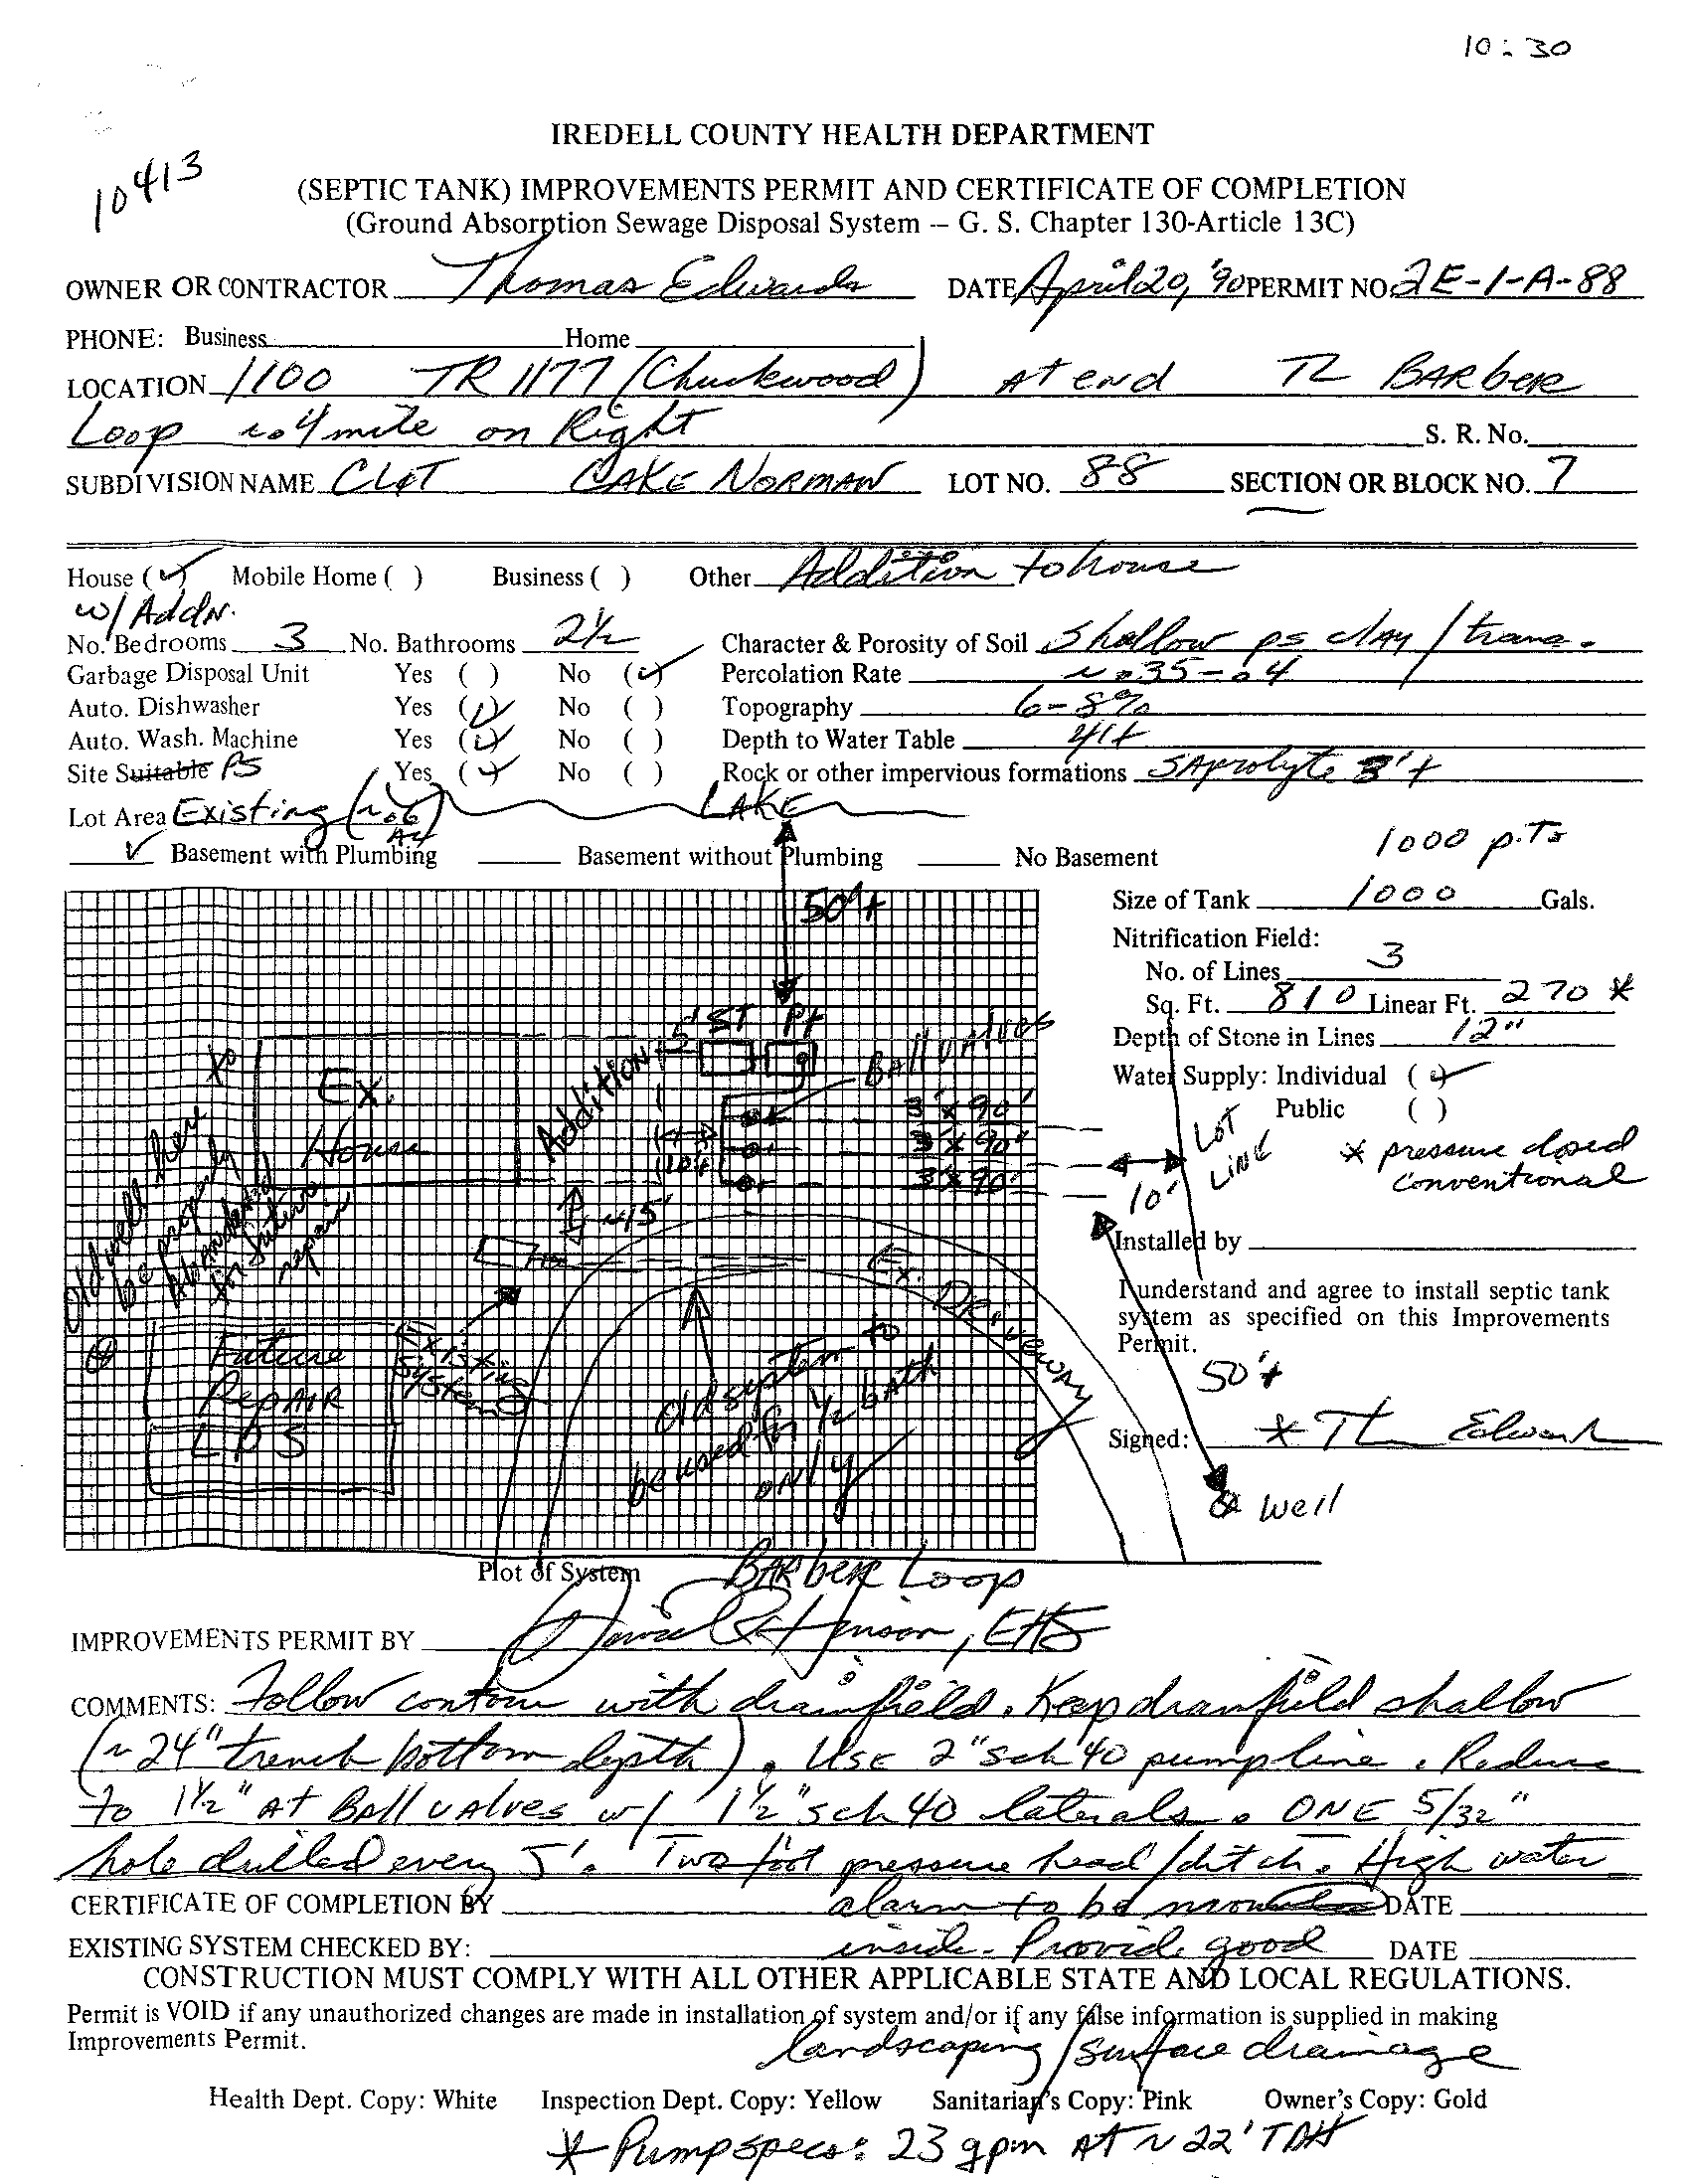 10:30
IREDELL COUNTY HEALTH DEPARTMENT
10413
(SEPTIC TANK) IMPROVEMENTS PERMIT AND CERTIFICATE OF COMPLETION
(Ground Absorption Sewage Disposal System -- G. S. Chapter 130-Article 13C)
OWNER OR CONTRACTOR Thomas Edwards DATE April 20, '90 PERMIT NO. 2E-1-A-88
PHONE: Business Home
LOCATION 1100 TR 1177 (Chuckwood) At end TL BARber
Loop ~.4 mile on Right S. R. No.
SUBDIVISION NAME LAKE NORMAN LOT NO. 88 SECTION OR BLOCK NO. 7
House (✓) Mobile Home ( ) Business ( ) Other Addition to house
w/ Addn.
No. Bedrooms 3 No. Bathrooms 2½ Character & Porosity of Soil Shallow ps clAy / trans.
Garbage Disposal Unit Yes ( ) No (✓) Percolation Rate ~.35-.4
Auto. Dishwasher Yes (✓) No ( ) Topography 6-8%
Auto. Wash. Machine Yes (✓) No ( ) Depth to Water Table 4'+
Site Suitable PS Yes (✓) No ( ) Rock or other impervious formations SAprolyte 3'+
Lot Area Existing (~.6 Ac) LAKE
✓ Basement with Plumbing Basement without Plumbing No Basement
1000 p.T.
50'+
Size of Tank 1000 Gals.
Nitrification Field:
No. of Lines 3
Sq. Ft. 810 Linear Ft. 270 *
Depth of Stone in Lines 12"
Water Supply: Individual (✓)
Public ( )
* pressure dosed
conventional
5' ST PT
BAll vAlves
Addition
Ex.
House
3'x90'
3'x90'
3'x90'
10'+
10'
LOT
LINE
~15'
Old well here to
be properly
AbAndoned
for future
repair
Ex. DRiveway
Existing
System
Future
RepAIR
LPS
Old system to
be used for ½ bAth
only
Installed by
I understand and agree to install septic tank
system as specified on this Improvements
Permit.
50'+
Signed: * Th Edwards
Well
Plot of System BARber Loop
IMPROVEMENTS PERMIT BY EHS
COMMENTS: Follow contour with drainfield. Keep drainfield shallow
(~24" trench bottom depth). Use 2" sch 40 pump line. Reduce
to 1½" At BAll vAlves w/ 1½" sch 40 laterals. ONE 5/32"
hole drilled every 5'. Two foot pressure head/ditch. High water
CERTIFICATE OF COMPLETION BY alarm to be mounted DATE
EXISTING SYSTEM CHECKED BY: inside. Provide good DATE
CONSTRUCTION MUST COMPLY WITH ALL OTHER APPLICABLE STATE AND LOCAL REGULATIONS.
Permit is VOID if any unauthorized changes are made in installation of system and/or if any false information is supplied in making
Improvements Permit.
landscaping/surface drainage
Health Dept. Copy: White Inspection Dept. Copy: Yellow Sanitarian's Copy: Pink Owner's Copy: Gold
* Pump specs: 23 gpm AT ~22' TDH